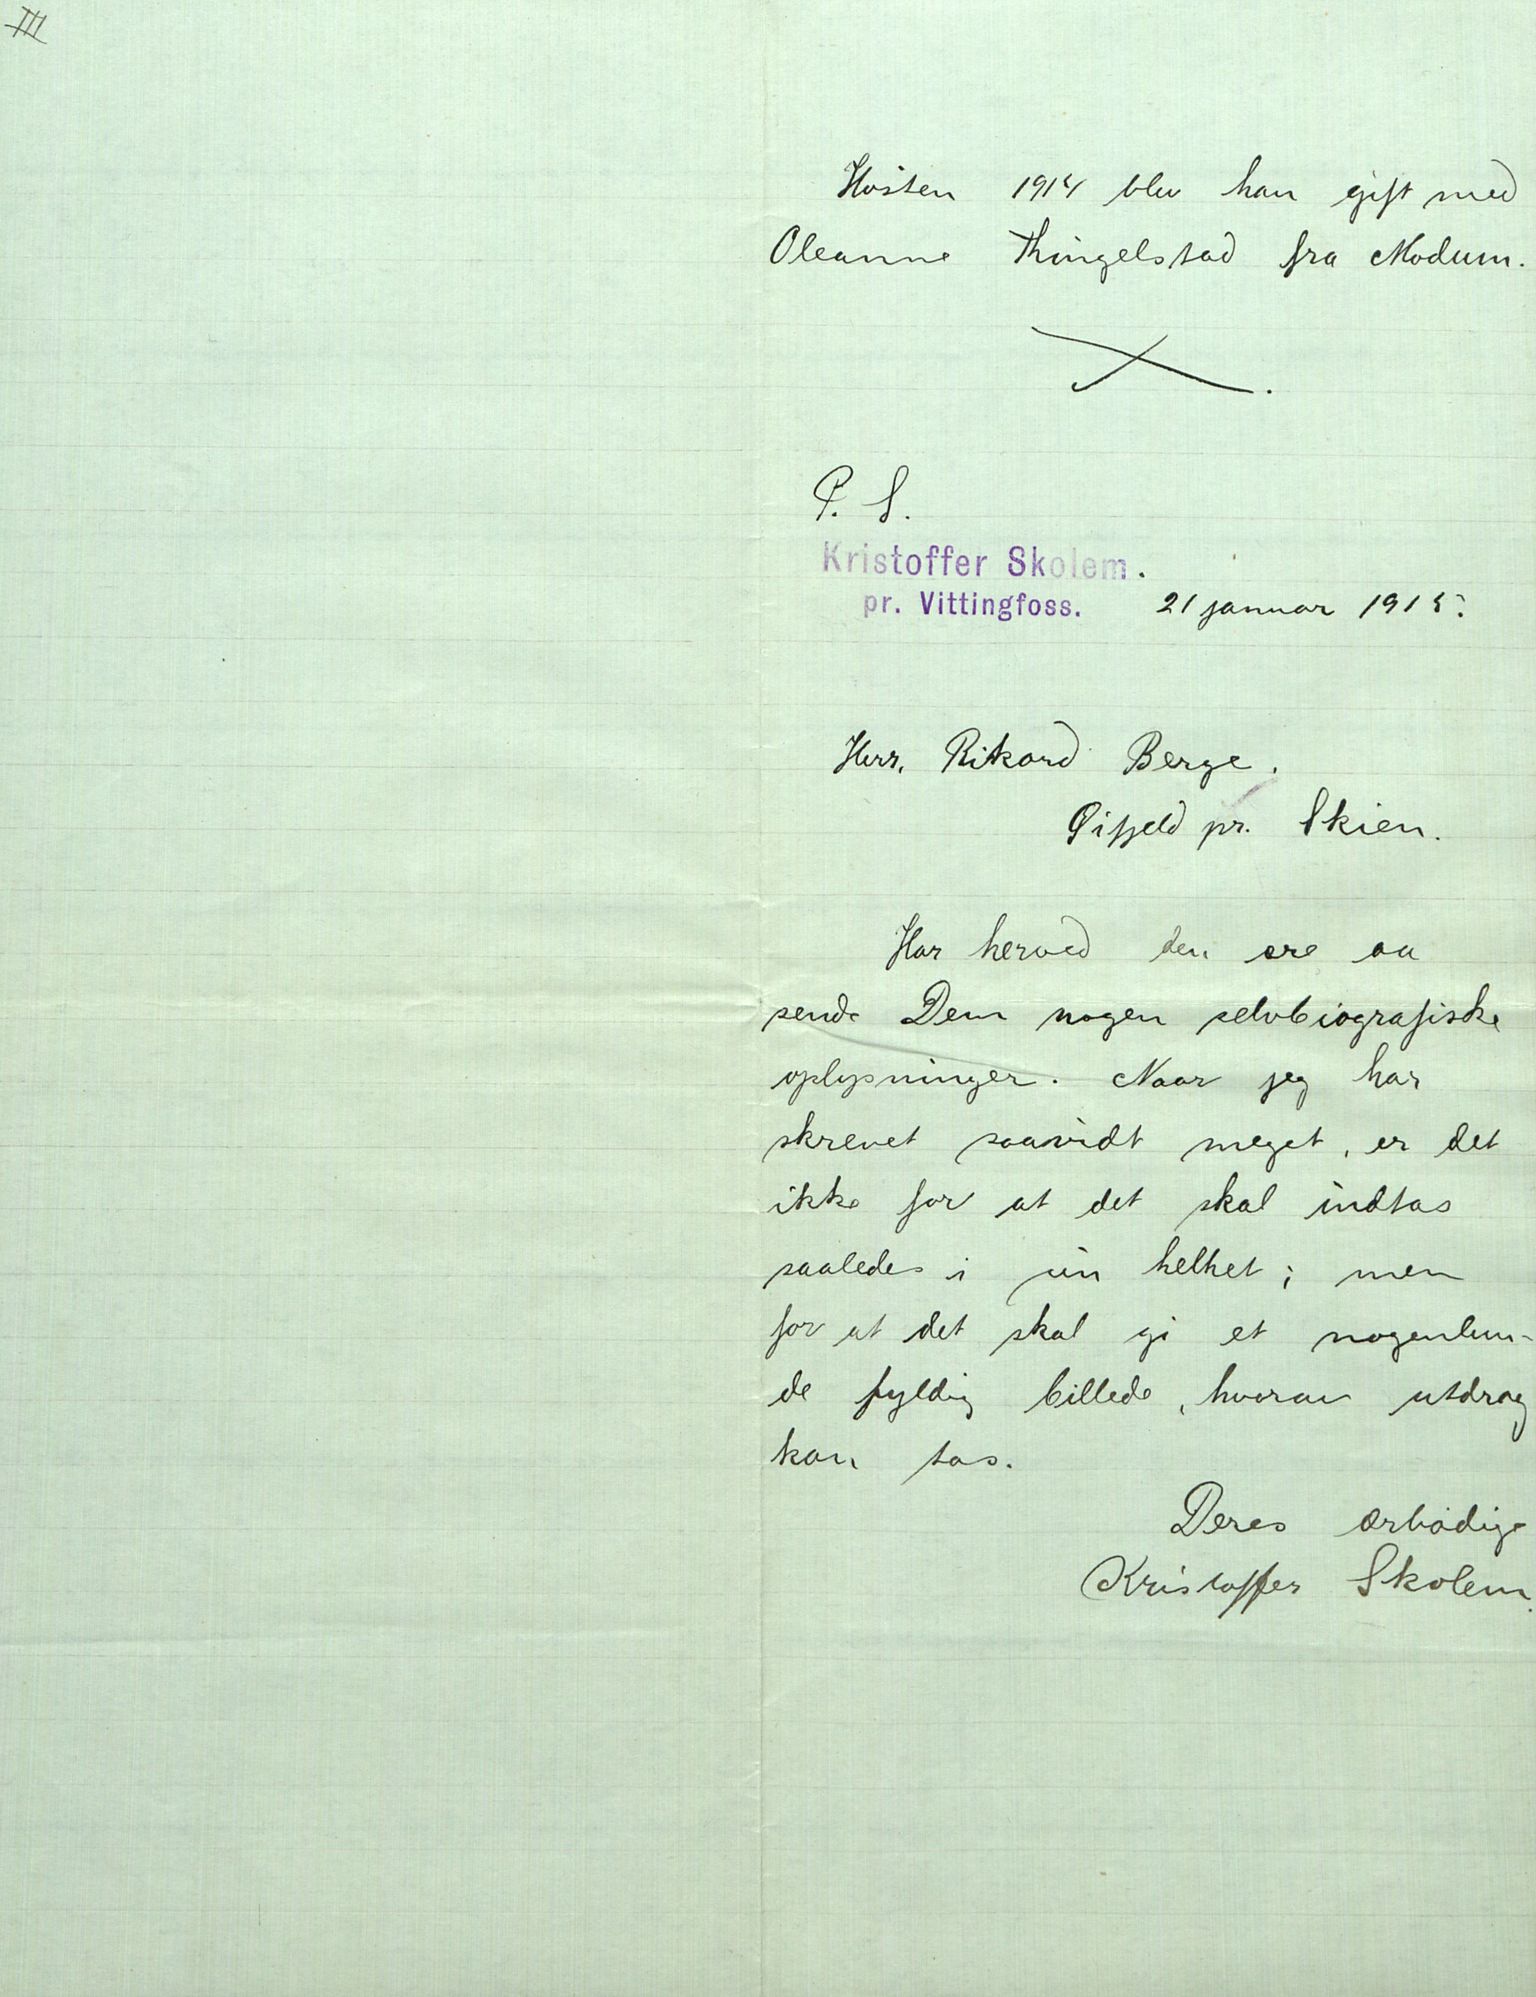 III
Høsten 1914 blev han gift med
Oleanne Thingelstad fra Modum.
P. S.
Kristoffer Skolem.
pr. Vittingfoss. 21 januar 1915.
Herr. Rikard Berge.
Øifjeld pr. Skien.
Har herved den ære aa
sende Dem nogen selvbiografiske
oplysninger. Naar jeg har
skrevet saavidt meget, er det
ikke for at det skal indtas
saaledes i sin helhet; men
for at det skal gi et nogenlun-
de fyldig billede, hvorav utdrag
kan tas.
Deres ærbødige
Kristoffer Skolem.